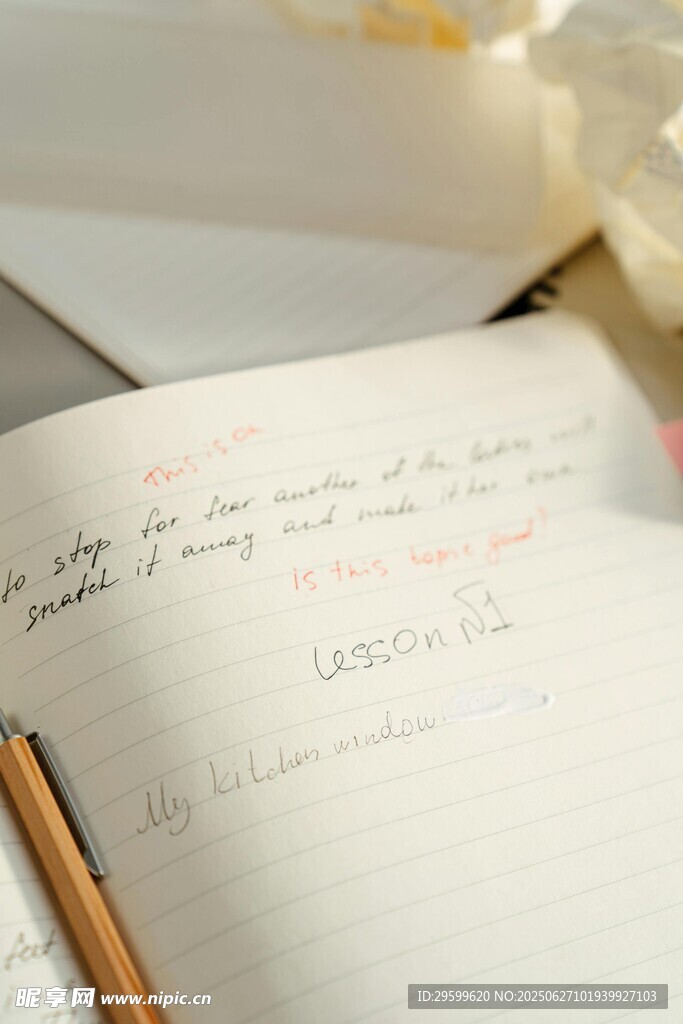 This is a
to stop for fear another of the
snatch it away and make it her own
is this topic good?
Lesson N1
My kitchen window.
feet
昵享网 www.nipic.cn
ID:29599620 NO:20250627101939927103